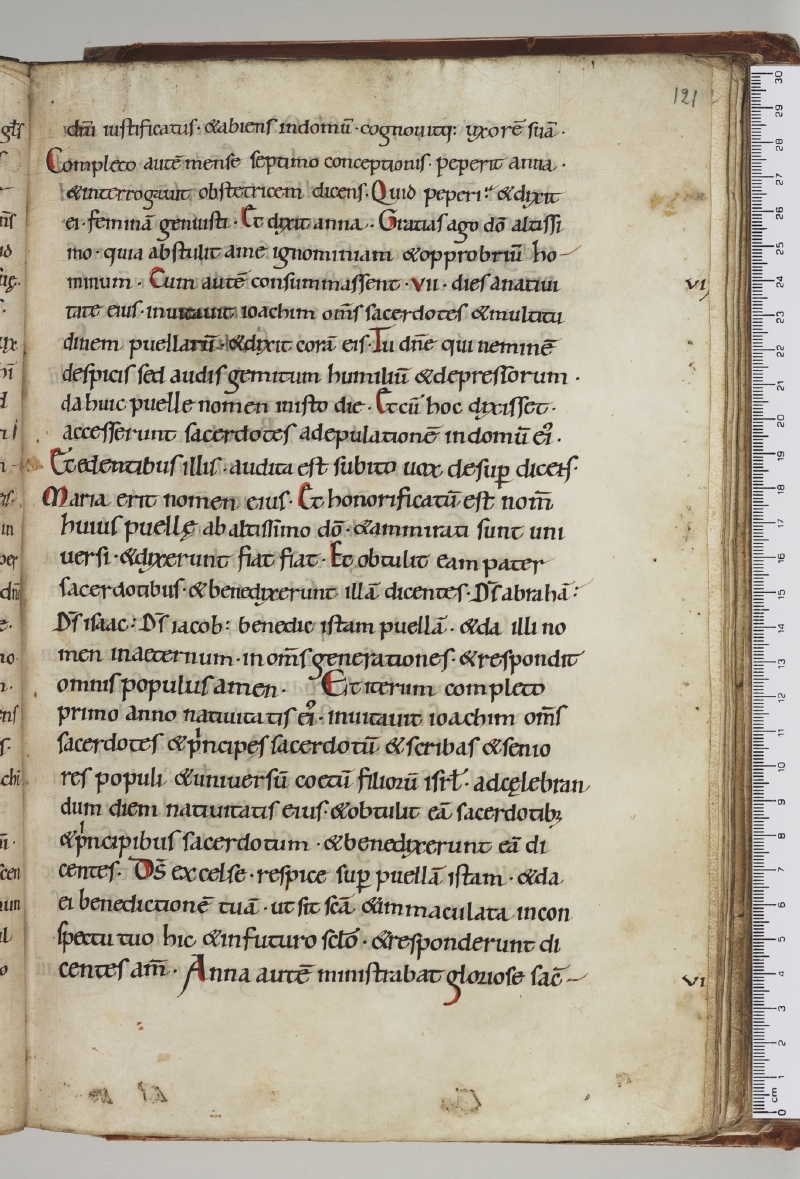 121
dm̄ iustificatus· &abiens indomū·cognouitq: uxorē suā·
Completo autē mense septimo conceptionis· peperit anna·
&interrogauit obstetricem dicens· Quid peperi? &dixit
ei·feminā genuisti· Et dixit anna· Gratias ago dō altissi
mo·quia abstulit ame ignominiam &opprobriū ho-
minum· Cum autē consummassent·vii·dies anatiui
VI
tate eius·inuitauit ioachim om̄s sacerdotes &multitu
dinem puellarū·&dixit corā eis· Tu dn̄e qui neminē
despicis sed audis gemitum humiliū &depressorum·
da huic puelle nomen inisto die· Et cū hoc dixisset·
accesserunt sacerdotes adepulationē indomū ei᾽·
Et edentibus illis·audita est subito uox desup̱ dicens·
Maria erit nomen eius· Et honorificatū est nom̄
huius puellę abaltissimo dō·&ammirati sunt uni
uersi·&dixerunt fiat fiat· Et obtulit eam pater
sacerdotibus·&benedixerunt illā dicentes· D̄s abrahā:
D̄s isaac: D̄s iacob: benedic istam puellā·&da illi no
men inaeternum·in om̄s generationes·&respondit
omnis populus amen· Et iterum completo
primo anno natiuitatis ei᾽·inuitauit ioachim om̄s
sacerdotes &pͥncipes sacerdotū &scribas &senio
res populi &uniuersū coetū filiorū isrl̄·adcęlebran
dum diem natiuitatis eius·&obtulit eā sacerdotibꝫ
&pͥncipibus sacerdotum·&benedixerunt eā di
centes· D̄s excelse·respice sup̱ puellā istam·&da
ei benedictionē tuā·ut sit sc̄a &immaculata incon
spectu tuo hic &infuturo scl̄o·&responderunt di
centes am̄· Anna autē ministrabat gloriose sac̄-
VI